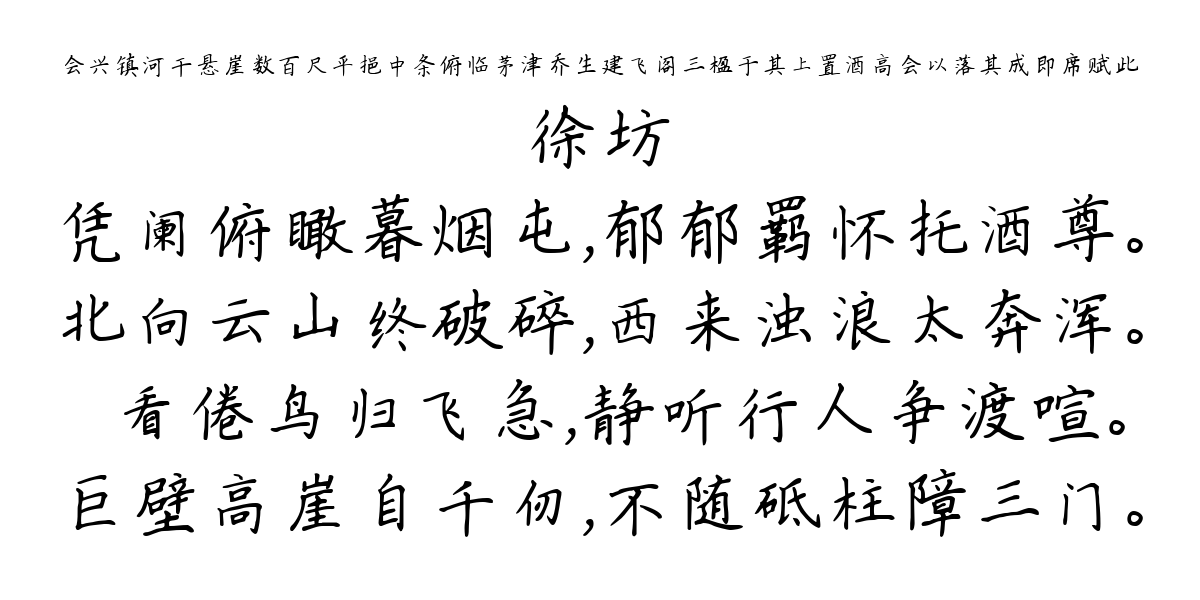 会兴镇河干悬崖数百尺平挹中条俯临茅津乔生建飞阁三楹于其上置酒高会以落其成即席赋此
徐坊
凭阑俯瞰暮烟屯,郁郁羁怀托酒尊。
北向云山终破碎,西来浊浪太奔浑。
看倦鸟归飞急,静听行人争渡喧。
巨壁高崖自千仞,不随砥柱障三门。